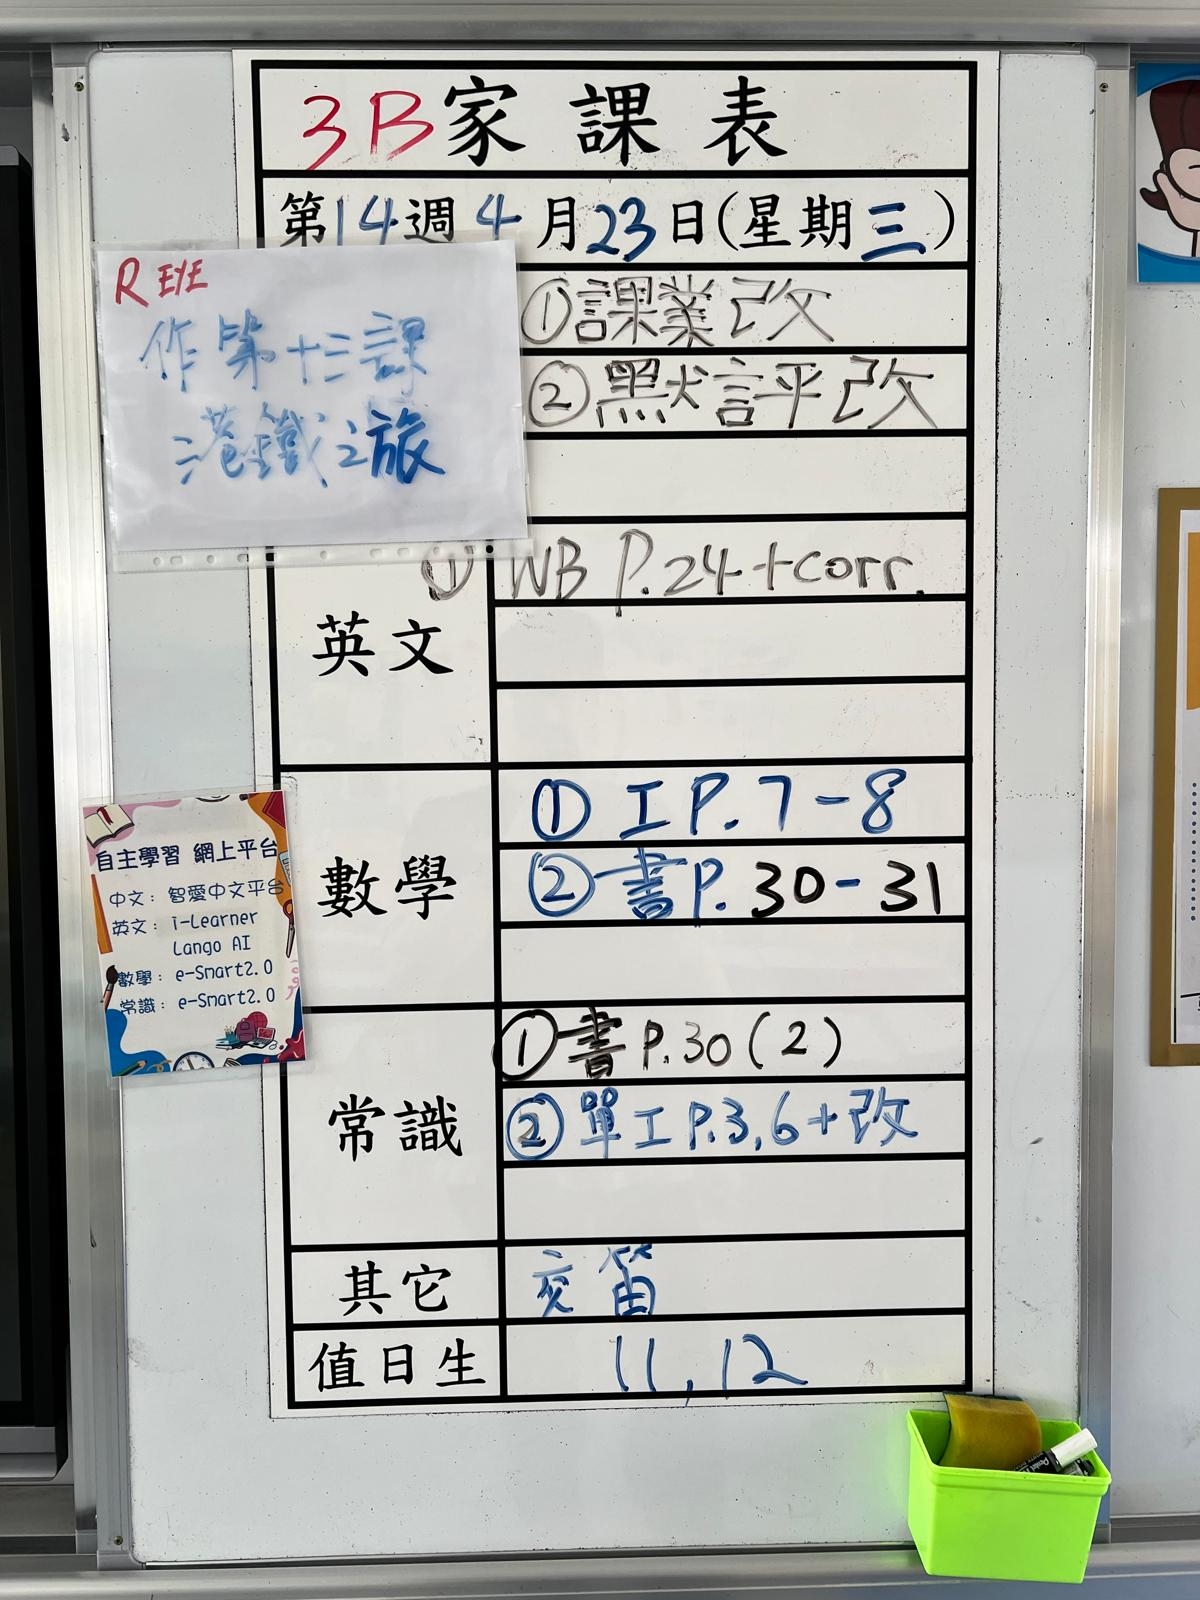 3B家課表
第14週4月23日(星期三)
R EYE
作第十三課
港鐵之旅
①課業改
②默評改
英文
① WB P.24+corr.
數學
① 工 P.7-8
②書P.30-31
自主學習 網上平台
中文：智愛中文平台
英文：i-Learner
Lango AI
數學：e-Smart2.0
常識：e-Smart2.0
常識
①書P.30(2)
②單工P.3,6+改
其它
交笛
值日生
11,12